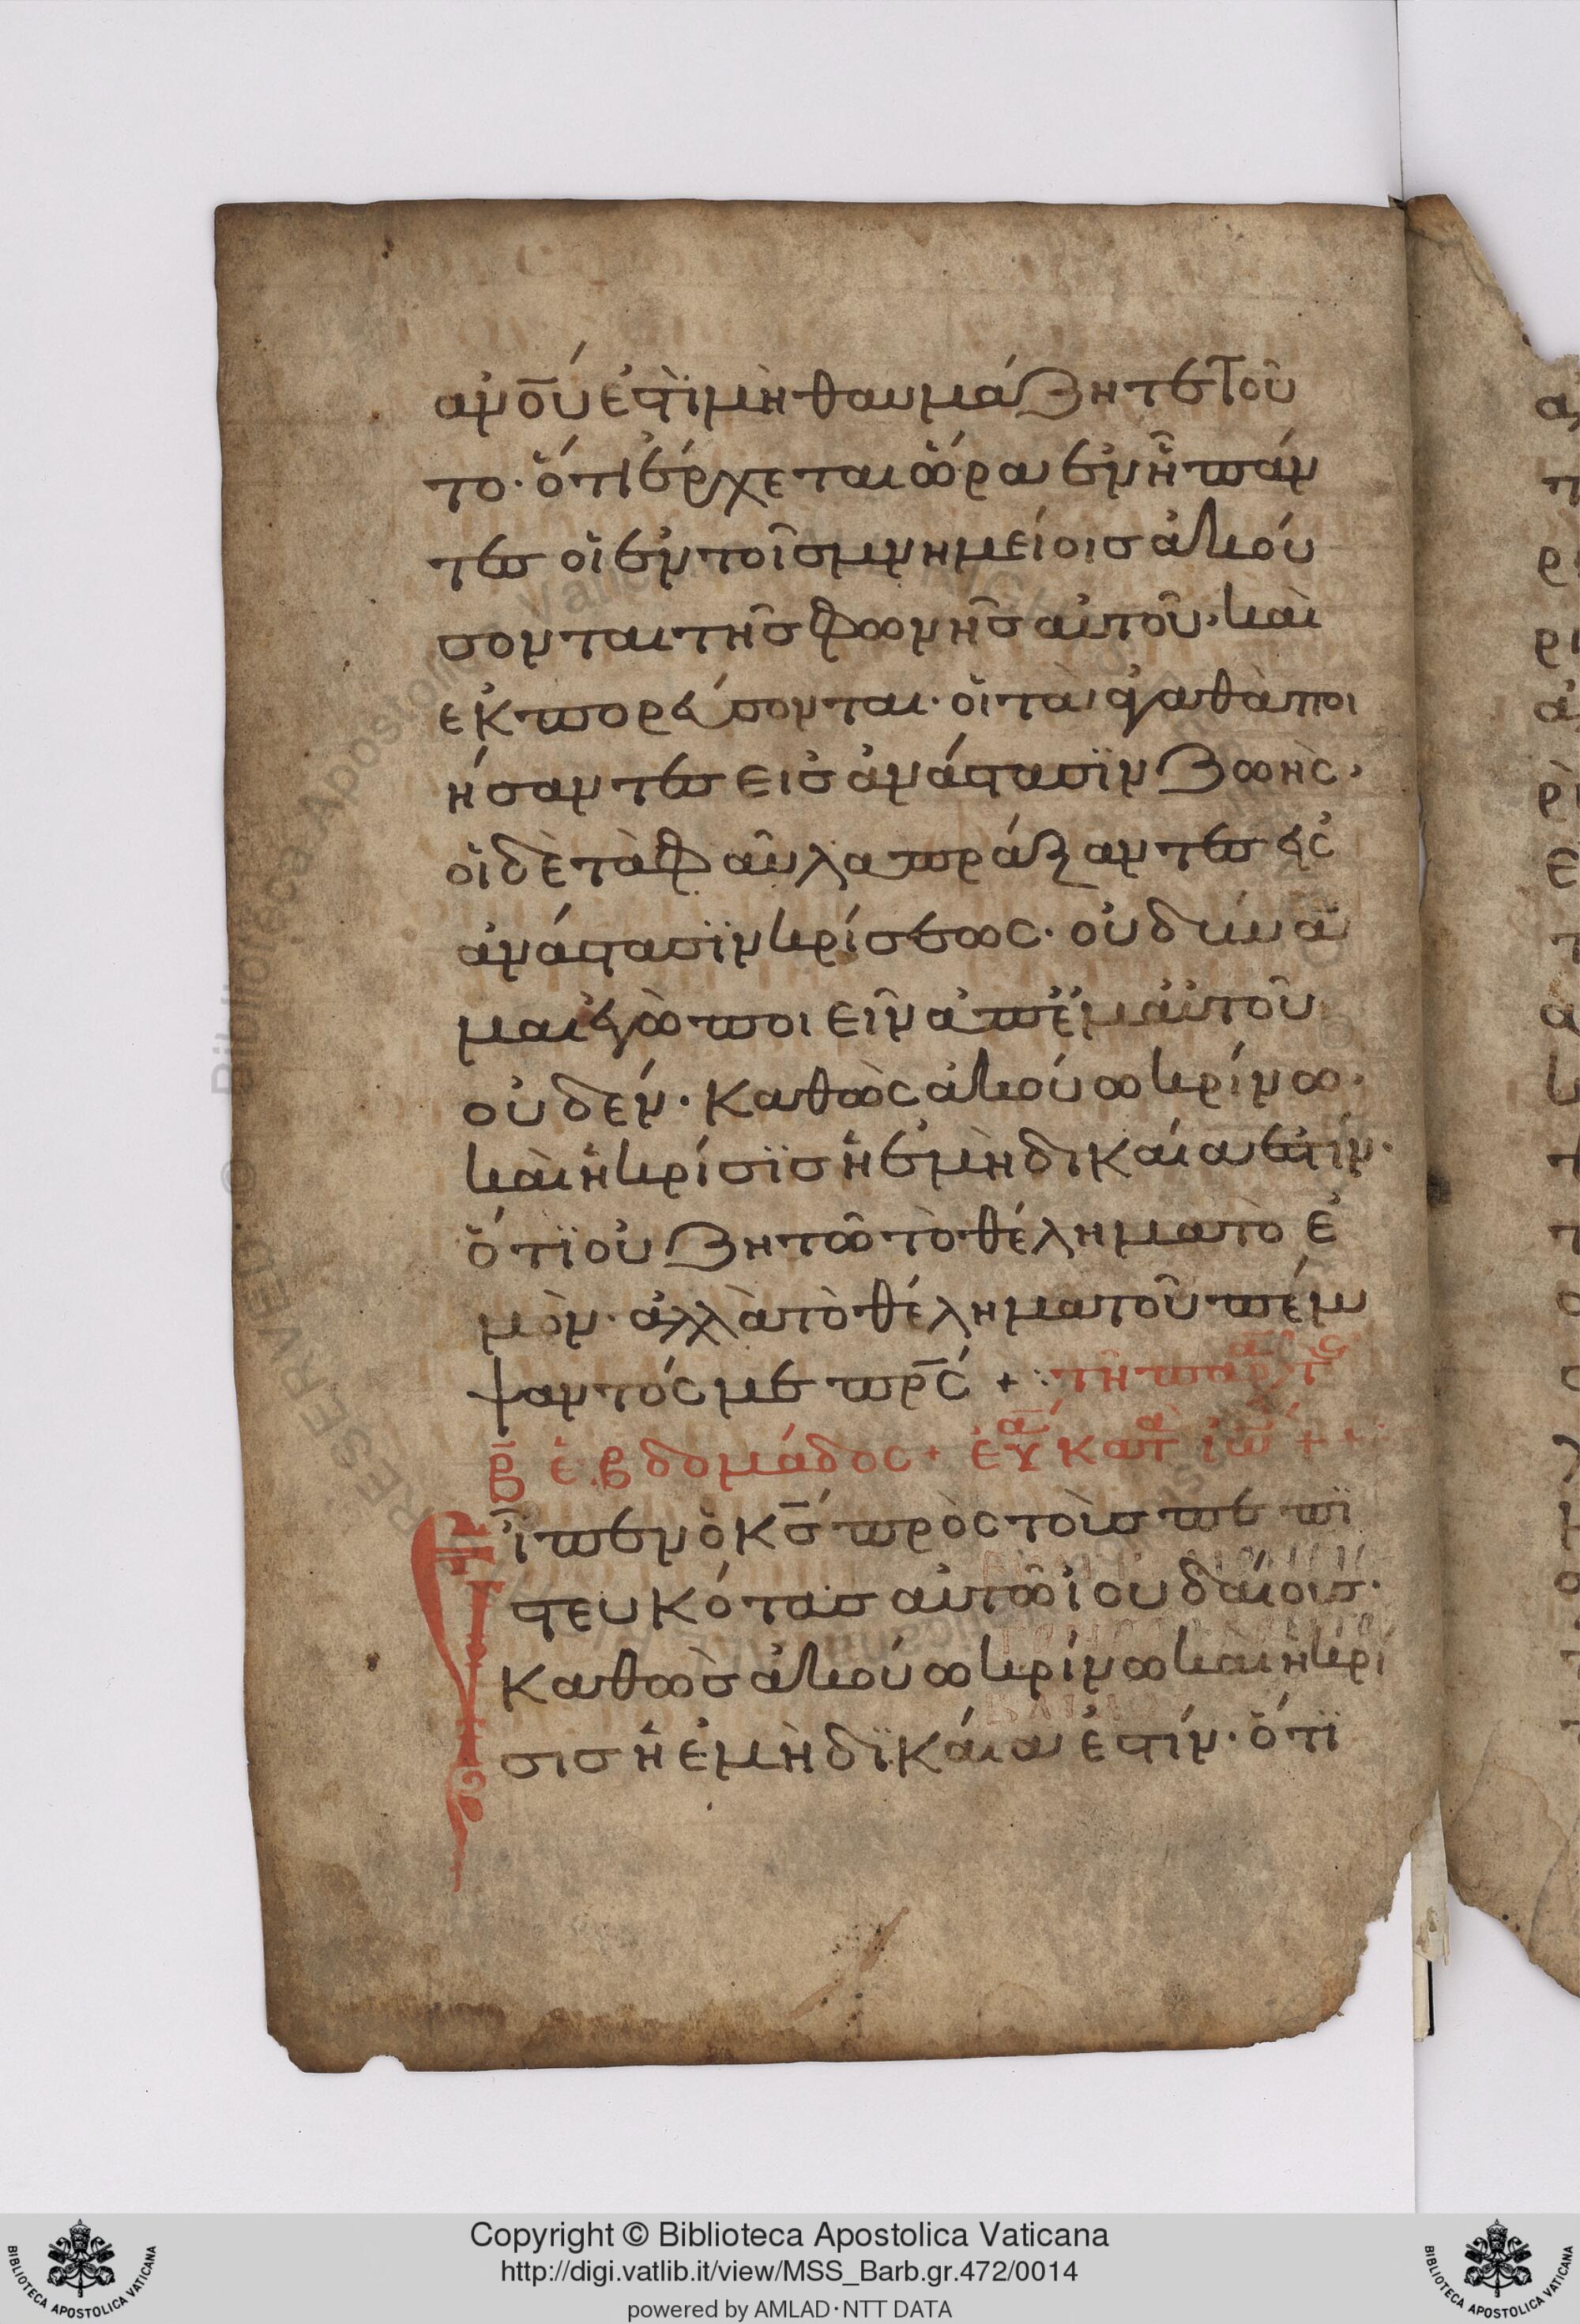 ἀν̅ο̅ύ̅ ἐστὶ μὴ θαυμάζητε τοῦ
το· ὅτι ἔρχεται ὥρα ἐν ἧ πάν
τες οἱ ἐν τοῖς μνημείοις ἀκού
σονται τῆς φωνῆς αὐτοῦ· καὶ
ἐκπορεύσονται· οἱ τὰ ἀγαθὰ ποι
ήσαντες εἰς ἀνάστασϊν ζωῆς·
οἱ δὲ τὰ φαῦλα πράξαντες εἰς
ἀνάστασϊν κρίσεως· οὐ δύνα
μαι ἐγὼ ποιεῖν ἀπ' ἐμαὐτοῦ
οὐδέν· καθὼς ἀκούω κρίνω·
καὶ ἡ κρίσϊς ἡ ἐμὴ δικαία ἐστίν·
ὅτϊ οὐ ζητῶ τὸ θέλημα τὸ ἐ
μὸν· ἀλλὰ τὸ θέλημα τοῦ πέμ
ψαντός με π̅ρ̅ς̅ +
β̅ ἑβδομάδος + ἐυ κατ ἰω +
Εἶπεν ὁ κ̅ς̅ πρὸς τοὺς πεπϊ
στευκότας αὐτῶ ἰουδαίους·
καθὼς ἀκούω κρίνω καὶ ἡ κρί
σις ἡ ἐμὴ δϊκαία ἐστίν· ὅτϊ
Copyright © Biblioteca Apostolica Vaticana
http://digi.vatlib.it/view/MSS_Barb.gr.472/0014
powered by AMLAD·NTT DATA
BIBLIOTECA APOSTOLICA VATICANA
BIBLIOTECA APOSTOLICA VATICANA